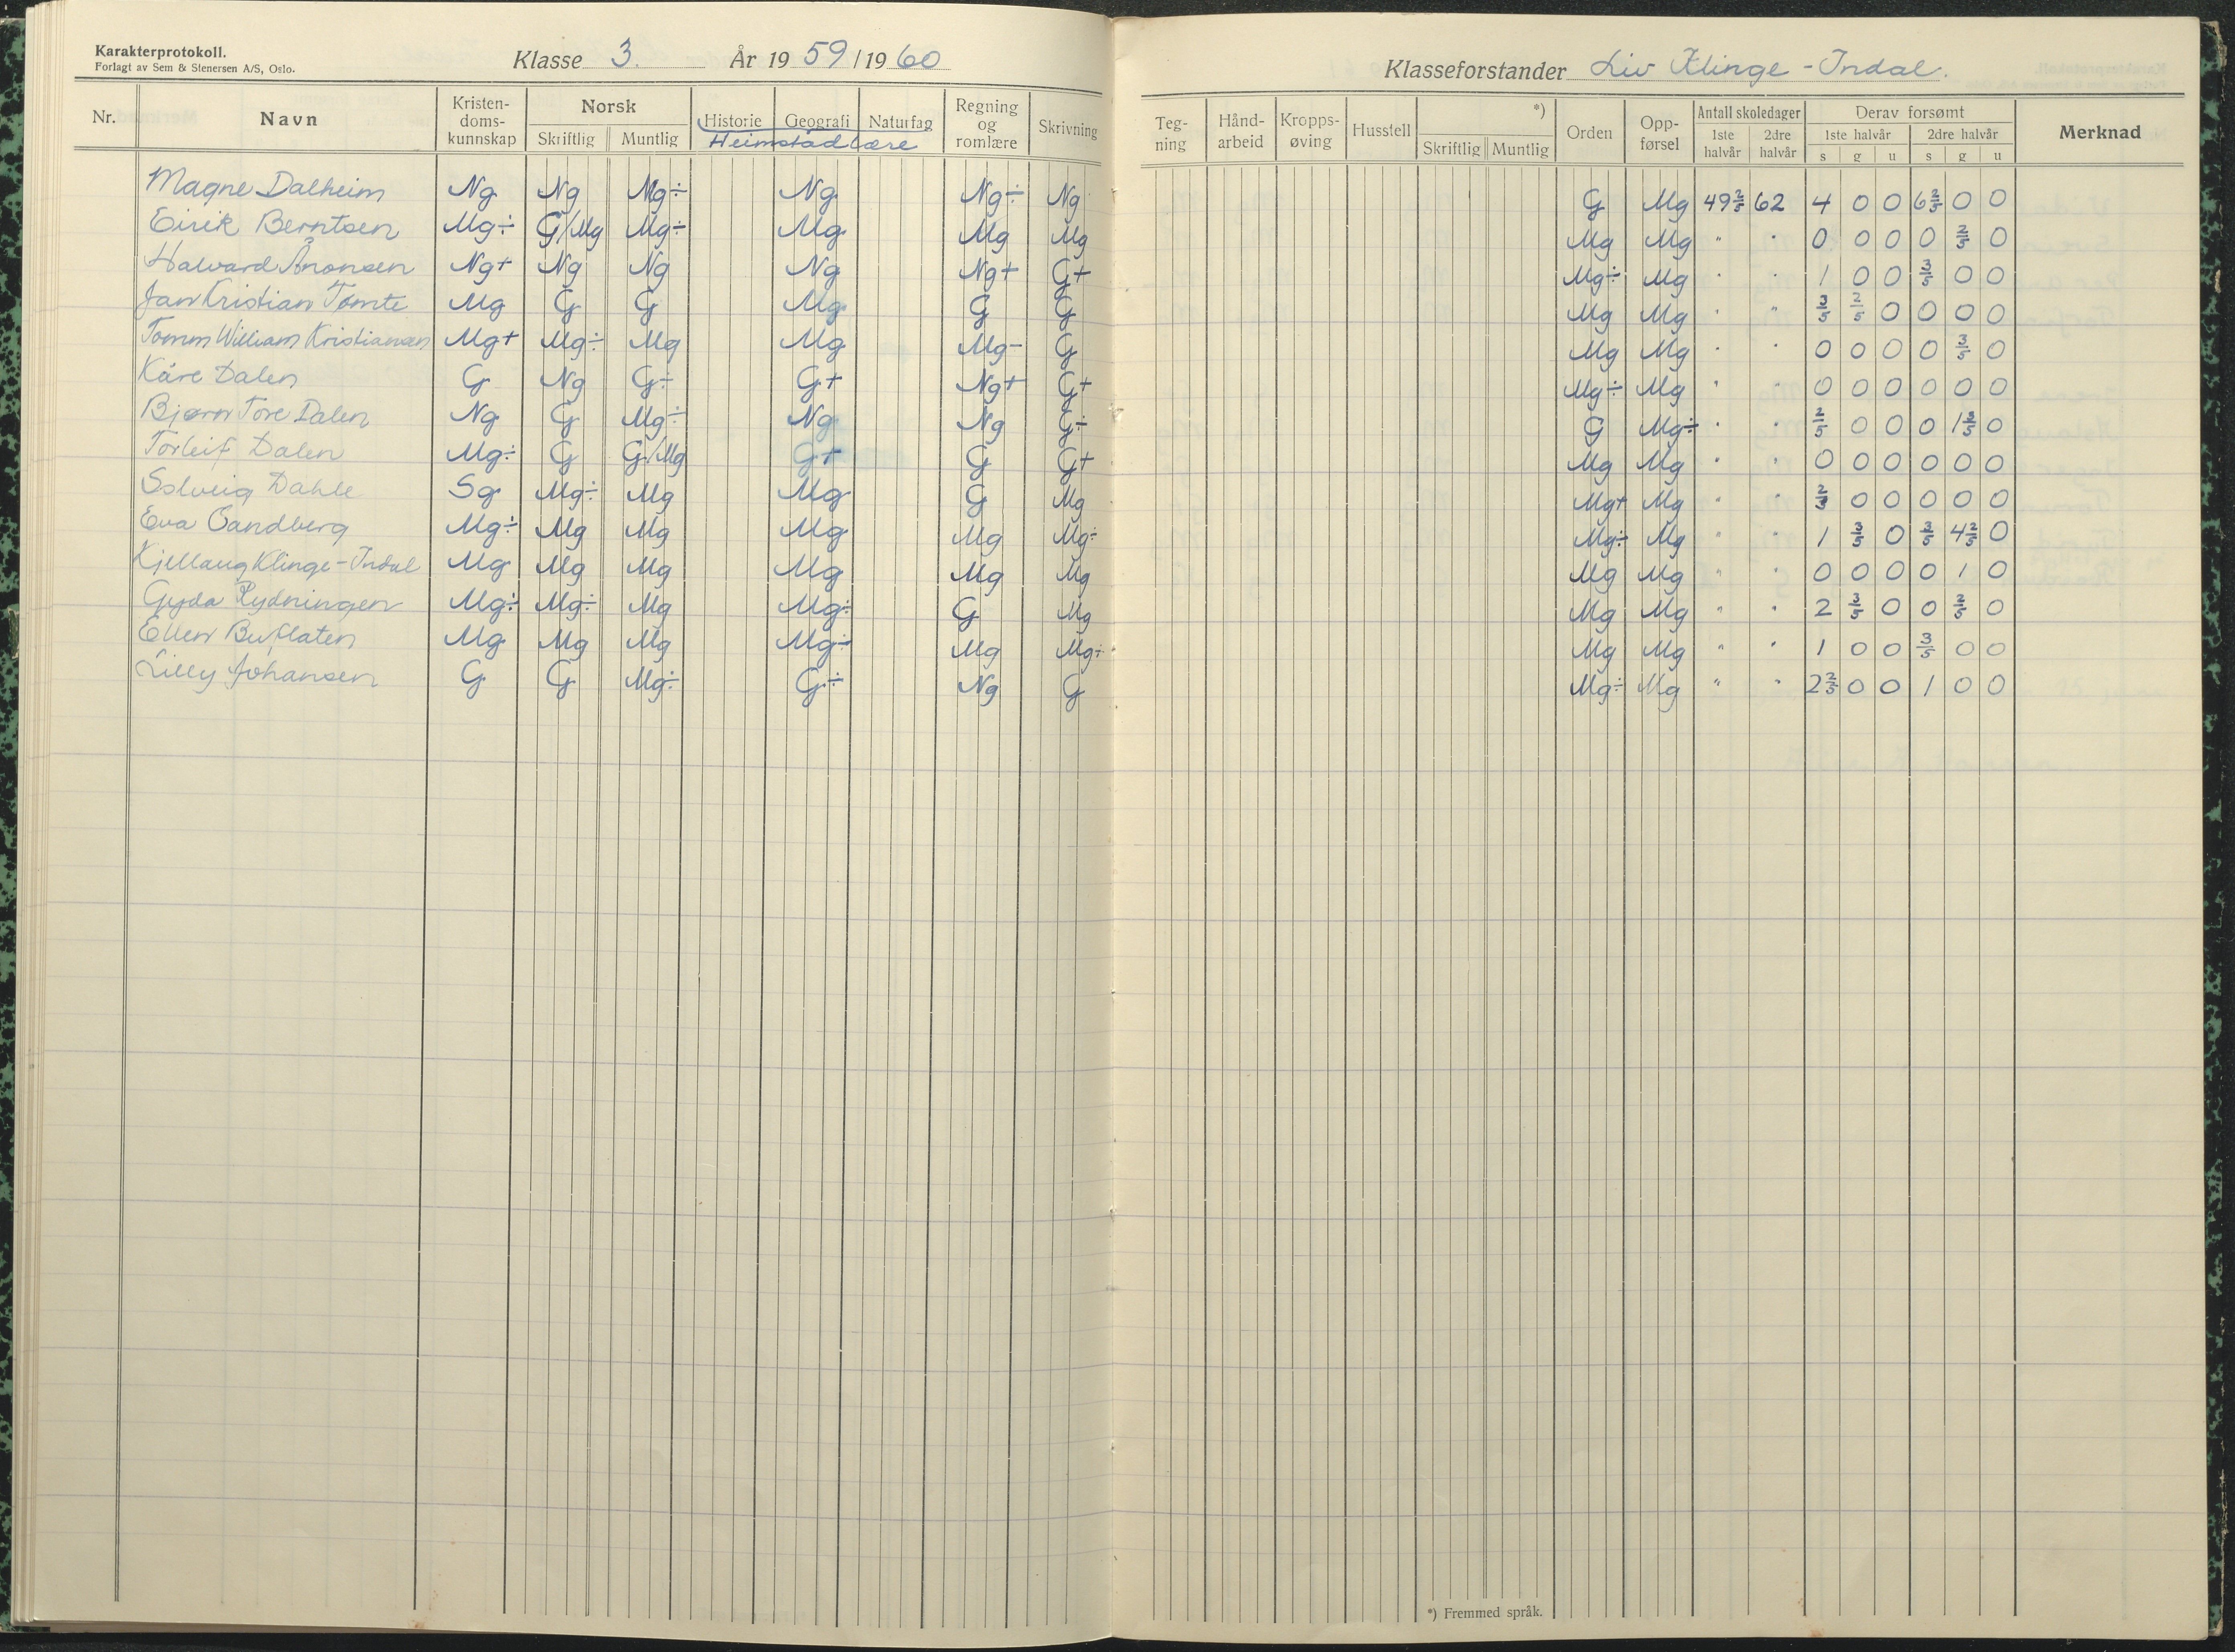 Karakterprotokoll.
Forlagt av Sem & Stenersen A/S, Oslo.
Klasse 3. År 1959/1960
Klasseforstander Liv Klinge-Indal.
Nr. Navn Kristendomskunnskap Norsk Skriftlig Muntlig Historie Geografi Naturfag Heimstadlære Regning og romlære Skrivning Tegning Håndarbeid Kroppsøving Husstell *) Skriftlig Muntlig Orden Oppførsel Antall skoledager 1ste halvår 2dre halvår Derav forsømt 1ste halvår s g u 2dre halvår s g u Merknad
Magne Dalheim Ng Ng Mg÷ Ng Ng÷ Ng G Mg 49 2/5 62 4 0 0 6 2/5 0 0
Eirik Berntsen Mg÷ G/Mg Mg÷ Mg Mg Mg Mg Mg " " 0 0 0 0 2/5 0
Halvard Ånonsen Ng+ Ng Ng Ng Ng+ G+ Mg÷ Mg " " 1 0 0 3/5 0 0
Jan Kristian Tømte Mg G G Mg G G Mg Mg " " 3/5 2/5 0 0 0 0
Tomm William Kristiansen Mg+ Mg÷ Mg Mg Mg- G Mg Mg " " 0 0 0 0 3/5 0
Kåre Dalen G Ng G÷ G+ Ng+ G+ Mg÷ Mg " " 0 0 0 0 0 0
Bjørn Tore Dalen Ng G Mg÷ Ng Ng G÷ G Mg÷ " " 2/5 0 0 0 1 3/5 0
Torleif Dalen Mg÷ G G/Mg G+ G G+ Mg Mg " " 0 0 0 0 0 0
Solveig Dahle Sg Mg÷ Mg Mg G Mg Mg+ Mg " " 2/5 0 0 0 0 0
Eva Sandberg Mg÷ Mg Mg Mg Mg Mg÷ Mg÷ Mg " " 1 3/5 0 3/5 4 2/5 0
Kjellaug Klinge-Indal Mg Mg Mg Mg Mg Mg Mg Mg " " 0 0 0 0 1 0
Gyda Rydningen Mg÷ Mg÷ Mg Mg÷ G Mg Mg Mg " " 2 3/5 0 0 2/5 0
Ellen Buflaten Mg Mg Mg Mg÷ Mg Mg÷ Mg Mg " " 1 0 0 3/5 0 0
Lilly Johansen G G Mg÷ G÷ Ng G Mg÷ Mg " " 2 2/5 0 0 1 0 0
*) Fremmed språk.